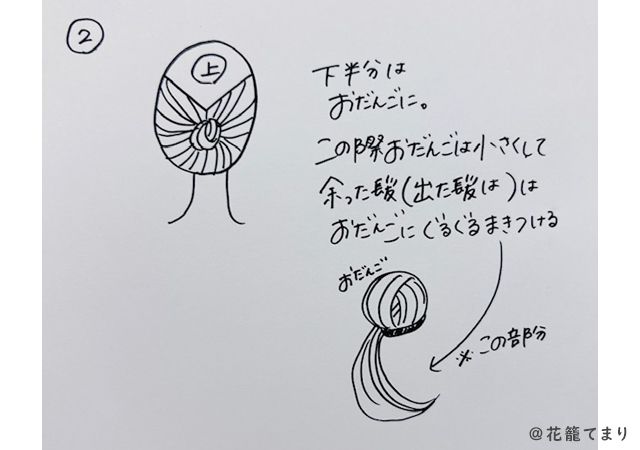 ②
上
下半分は
おだんごに。
この際おだんごは小さくして
余った髪(出た髪は)は
おだんごにぐるぐるまきつける
おだんご
※この部分
@花籠てまり